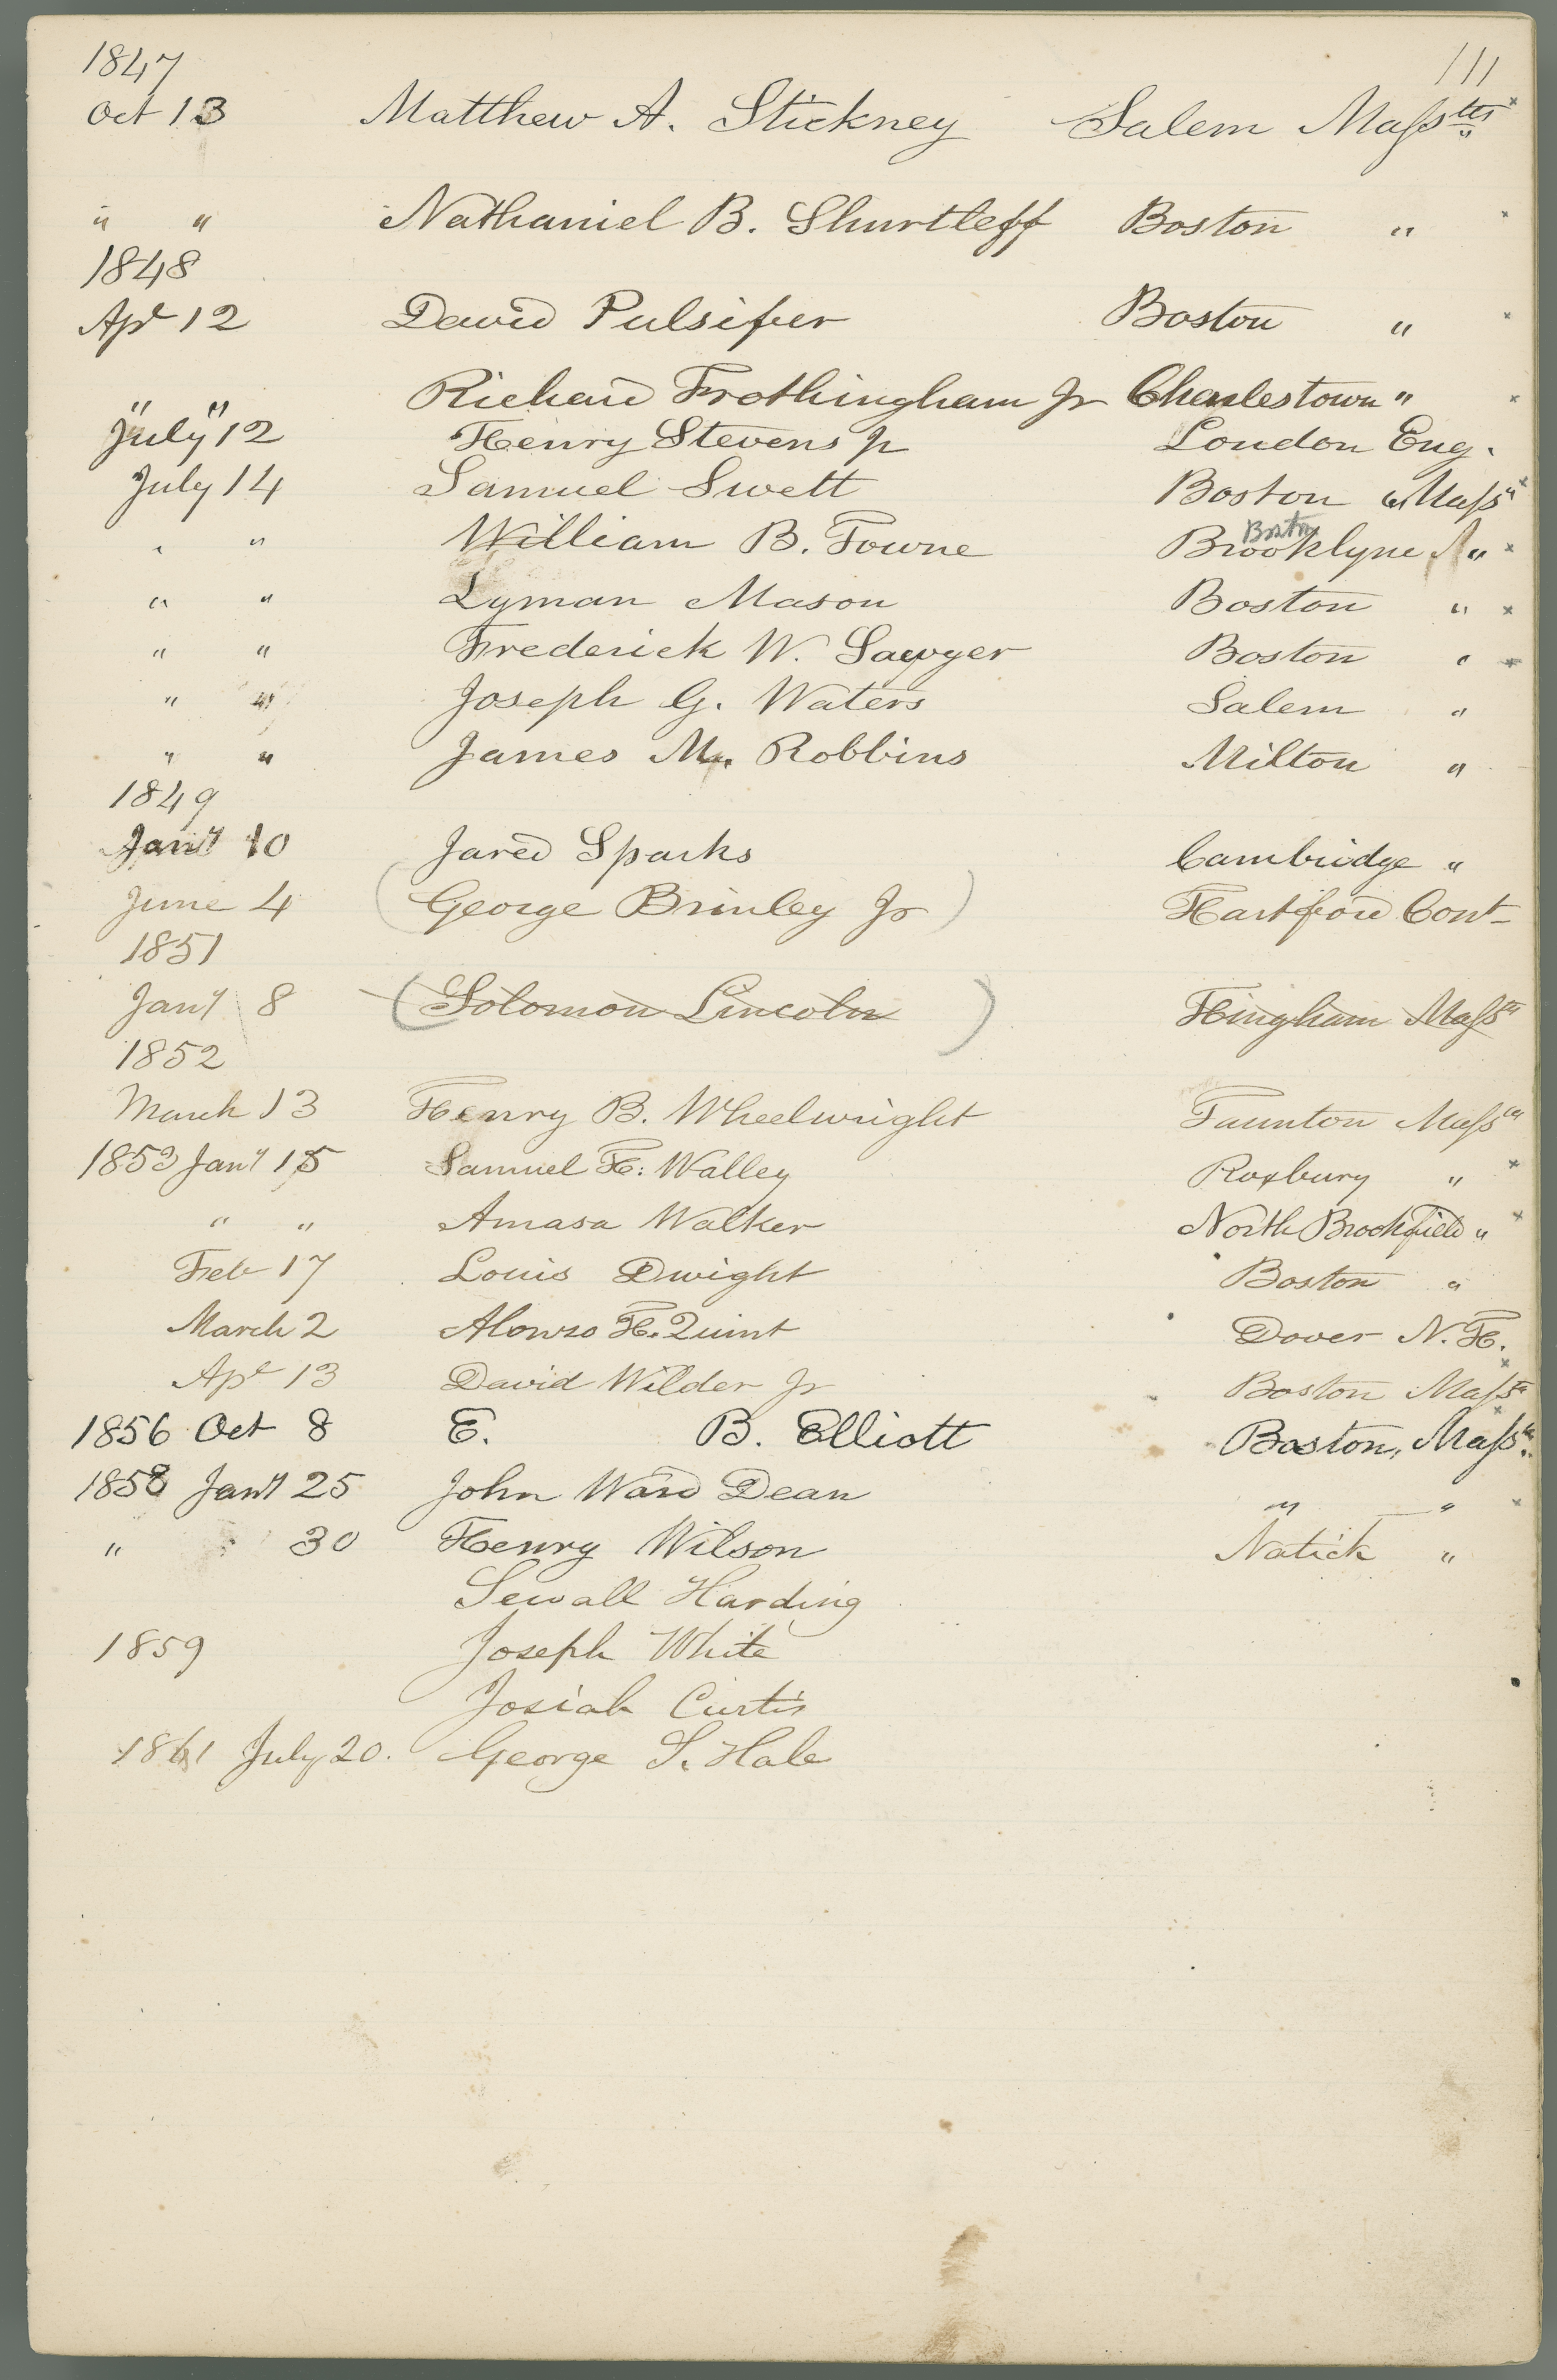 1847 111
Oct 13 Matthew A. Stickney Salem Massetts
" " Nathaniel B. Shurtleff Boston "
1848
Apl 12 David Pulsifer Boston "
" " Richard Frothingham Jr Charlestown "
July 12 Henry Stevens Jr London Eng.
July 14 Samuel Swett Boston Mass
Boston
" " William B. Towne Brooklyne "
" " Lyman Mason Boston "
" " Frederick W. Sawyer Boston "
" " Joseph G. Waters Salem "
" " James M. Robbins Milton "
1849
Jany 10 Jared Sparks Cambridge "
June 4 (George Brinley Jr) Hartford Cont
1851
Jany 8 (Solomon Lincoln) Hingham Mass
1852
March 13 Henry B. Wheelwright Taunton Mass
1853 Jany 15 Samuel H. Walley Roxbury "
" " Amasa Walker North Brookfield "
Feb 17 Louis Dwight Boston "
March 2 Alonzo H. Quint Dover N. H.
Apl 13 David Wilder Jr Boston Mass
1856 Oct 8 E. B. Elliott Boston, Mass
1858 Jany 25 John Ward Dean " "
" 30 Henry Wilson Natick "
Sewall Harding
1859 Joseph White
Josiah Curtis
1861 July 20. George S. Hale